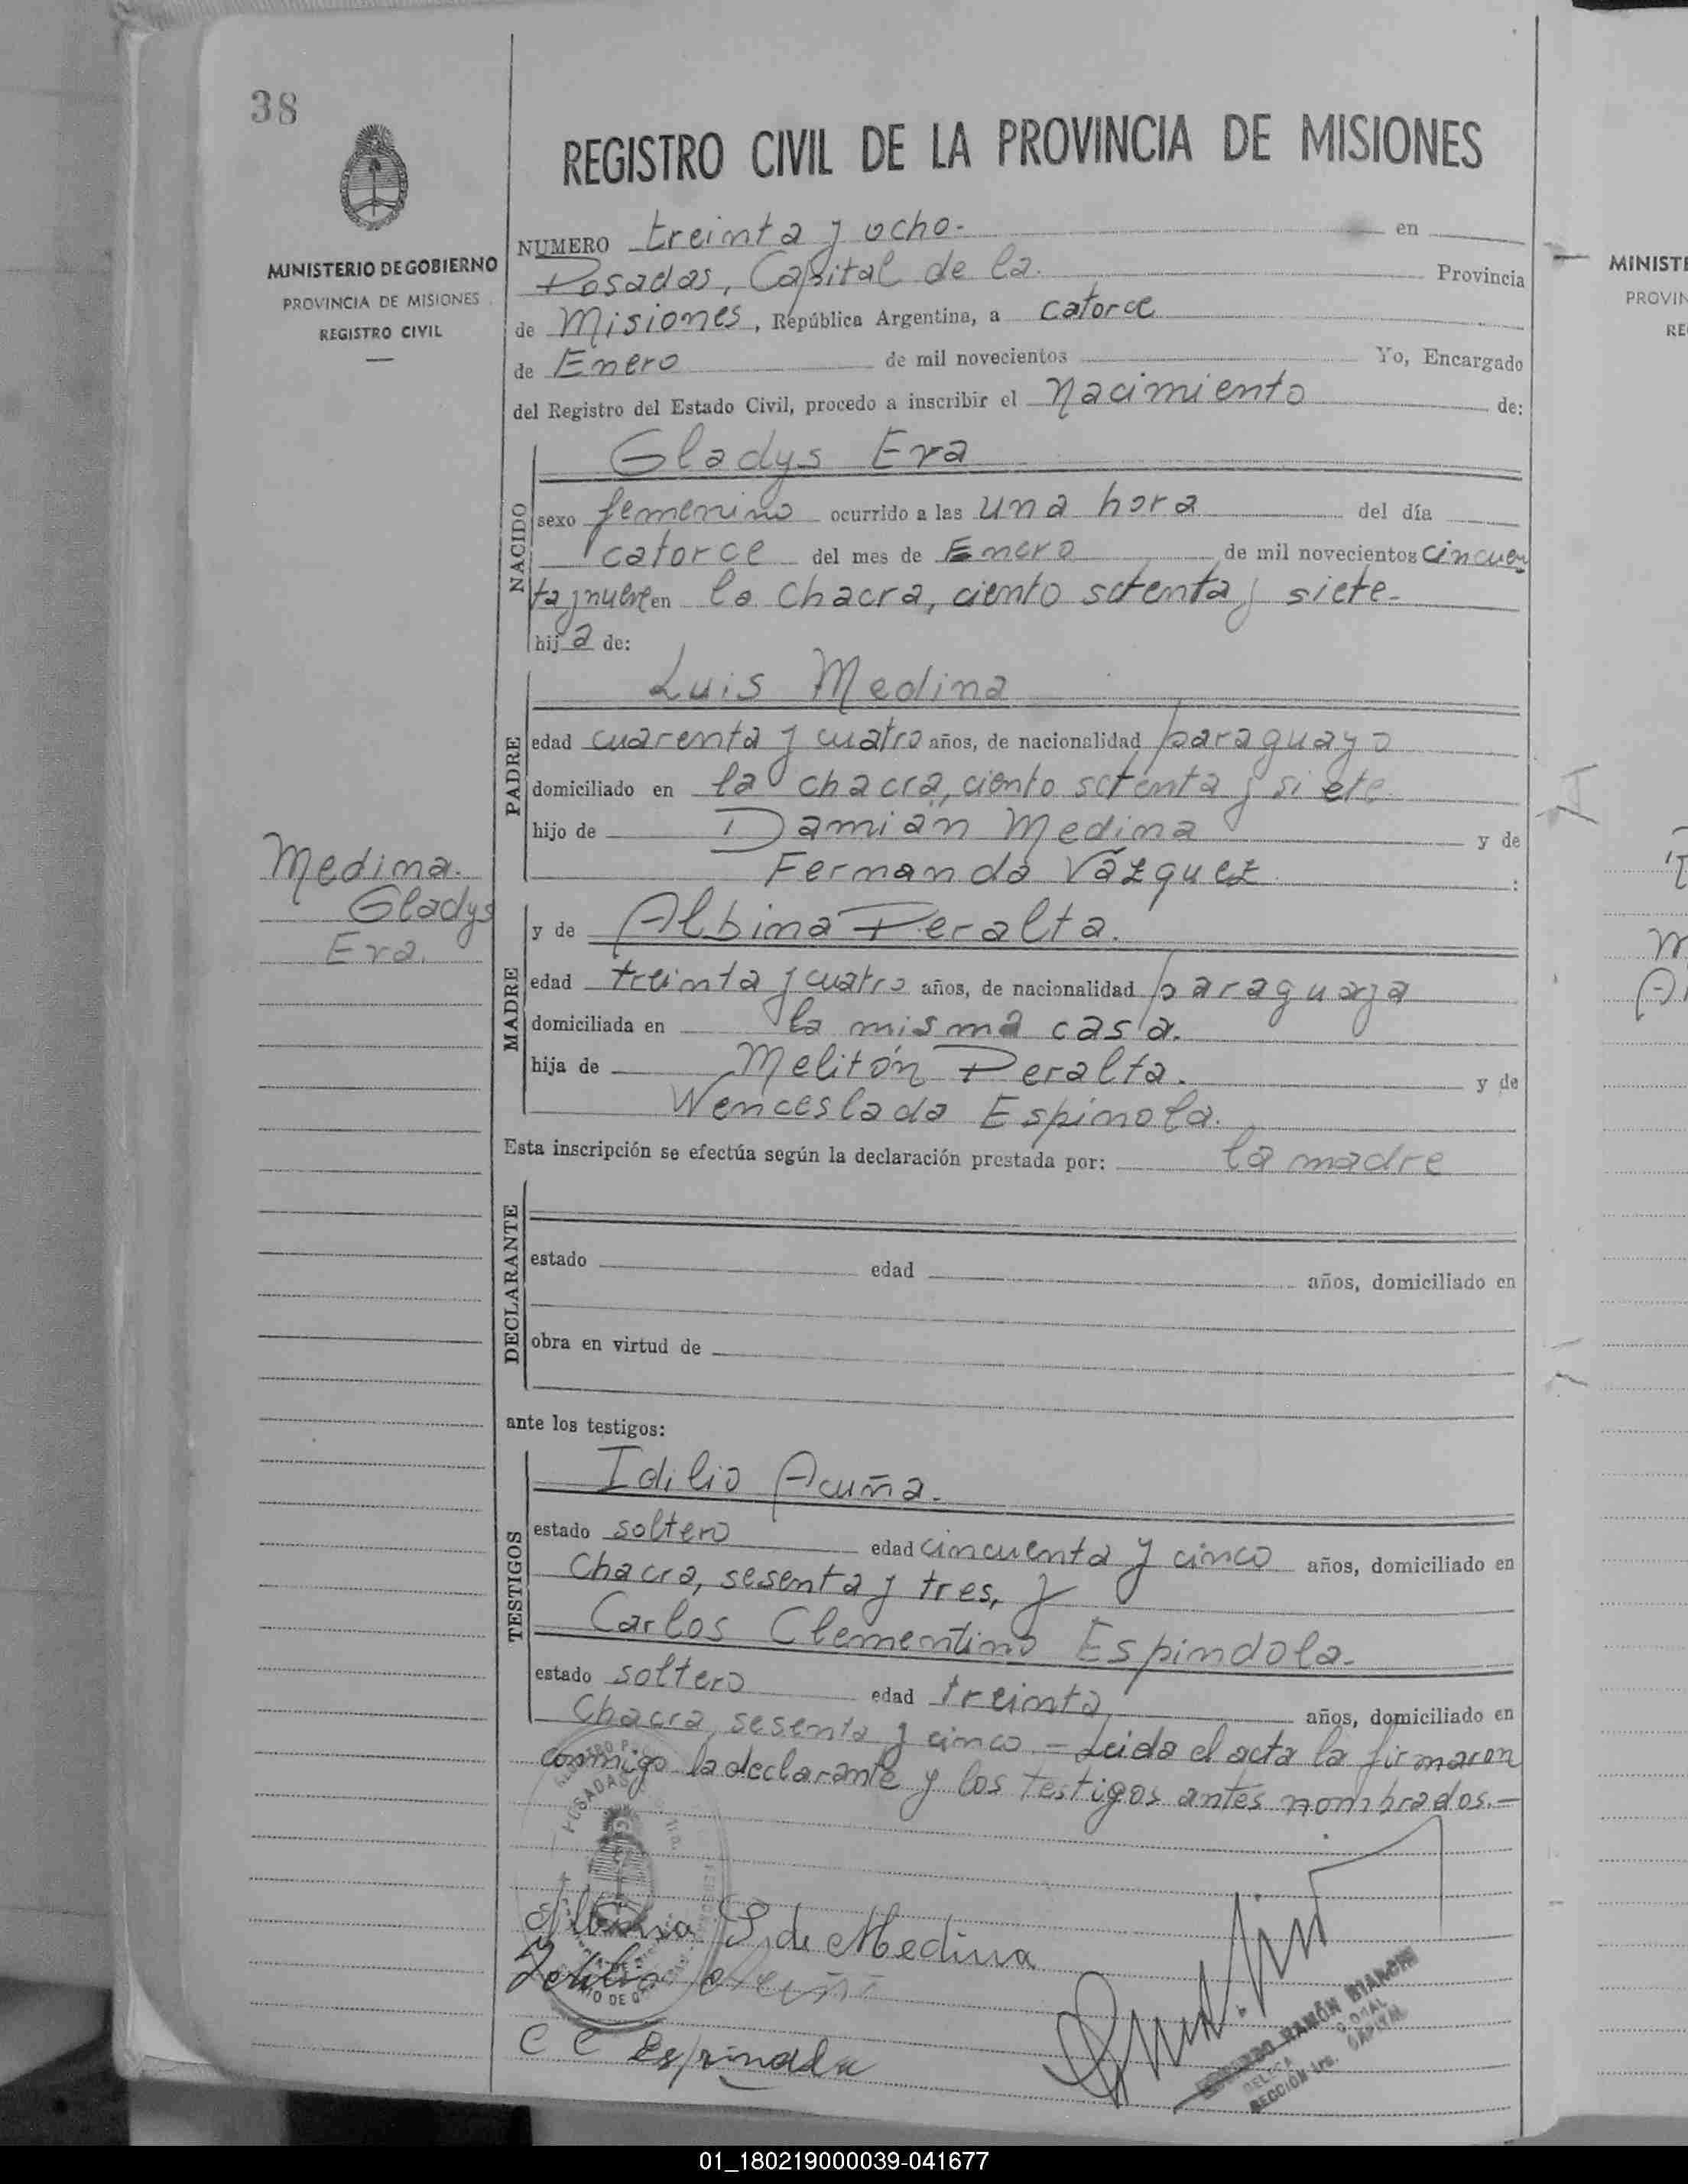 38
REGISTRO CIVIL DE LA PROVINCIA DE MISIONES
MINISTERIO DE GOBIERNO
PROVINCIA DE MISIONES
REGISTRO CIVIL
NUMERO treinta y ocho.- en
Posadas, Capital de la. Provincia
de Misiones, República Argentina, a catorce
de Enero de mil novecientos Yo, Encargado
del Registro del Estado Civil, procedo a inscribir el Nacimiento de:
NACIDO
Gladys Eva
sexo femenino ocurrido a las una hora del día
catorce del mes de Enero de mil novecientos cincuen
ta y nueve en la Chacra, ciento setenta y siete-
hija de:
PADRE
Luis Medina
edad cuarenta y cuatro años, de nacionalidad paraguayo
domiciliado en la chacra, ciento setenta y siete
hijo de Damián Medina y de
Fernanda Vázquez :
Medina.
Gladys
Eva.
MADRE
y de Albina Peralta.
edad treinta y cuatro años, de nacionalidad paraguaya
domiciliada en la misma casa.
hija de Melitón Peralta. y de
Wenceslada Espinola.
Esta inscripción se efectúa según la declaración prestada por: la madre
DECLARANTE
estado edad años, domiciliado en
obra en virtud de
ante los testigos:
TESTIGOS
Idilio Acuña.
estado soltero edad cincuenta y cinco años, domiciliado en
Chacra, sesenta y tres, y
Carlos Clementino Espindola-
estado soltero edad treinta años, domiciliado en
Chacra, sesenta y cinco.- Leida el acta la firmaron
conmigo la declarante y los testigos antes nombrados.-
POSADAS
Albina P. de Medina
C C Espindola
RAMÓN BIANCHI
SECCIÓN 1ra. CAPITAL
MINISTE
PROVIN
RE
01_180219000039-041677